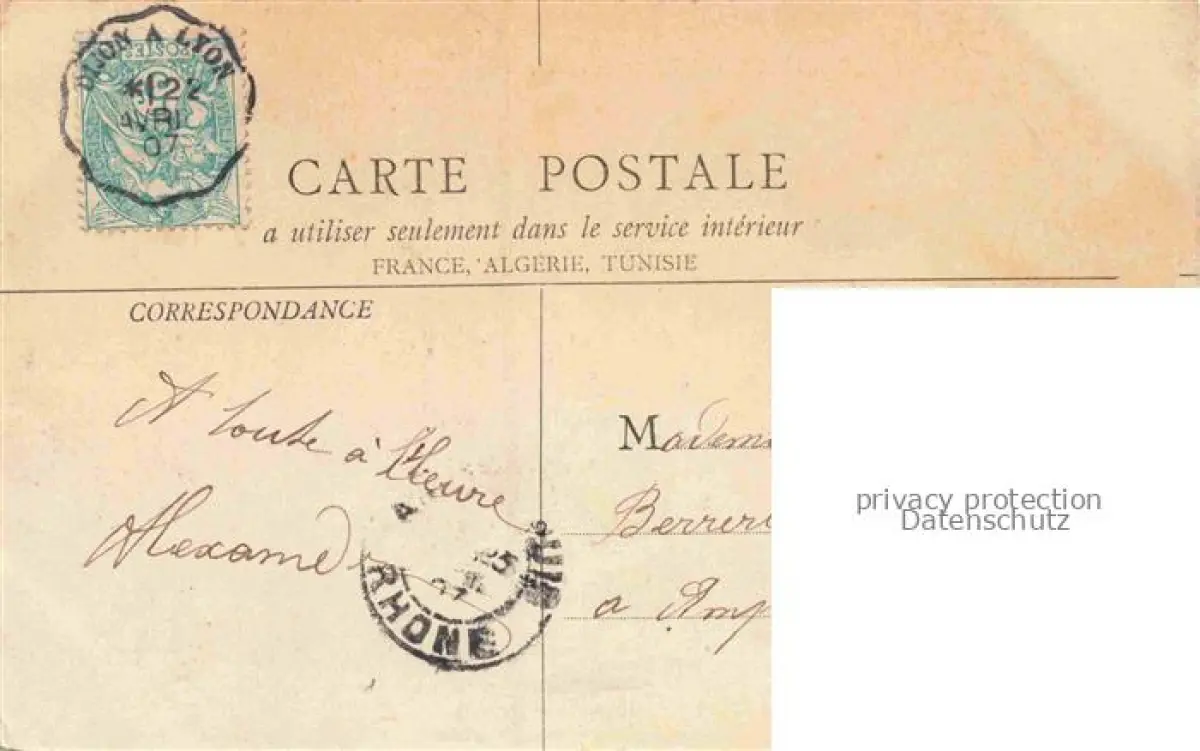 DIJON A LYON
*122
AVRIL
07
CARTE POSTALE
a utiliser seulement dans le service intérieur
FRANCE, ALGERIE, TUNISIE
CORRESPONDANCE
A toute à l'Heure
Alexand
RHONE
Madem
Berrer
a Amp
privacy protection
Datenschutz